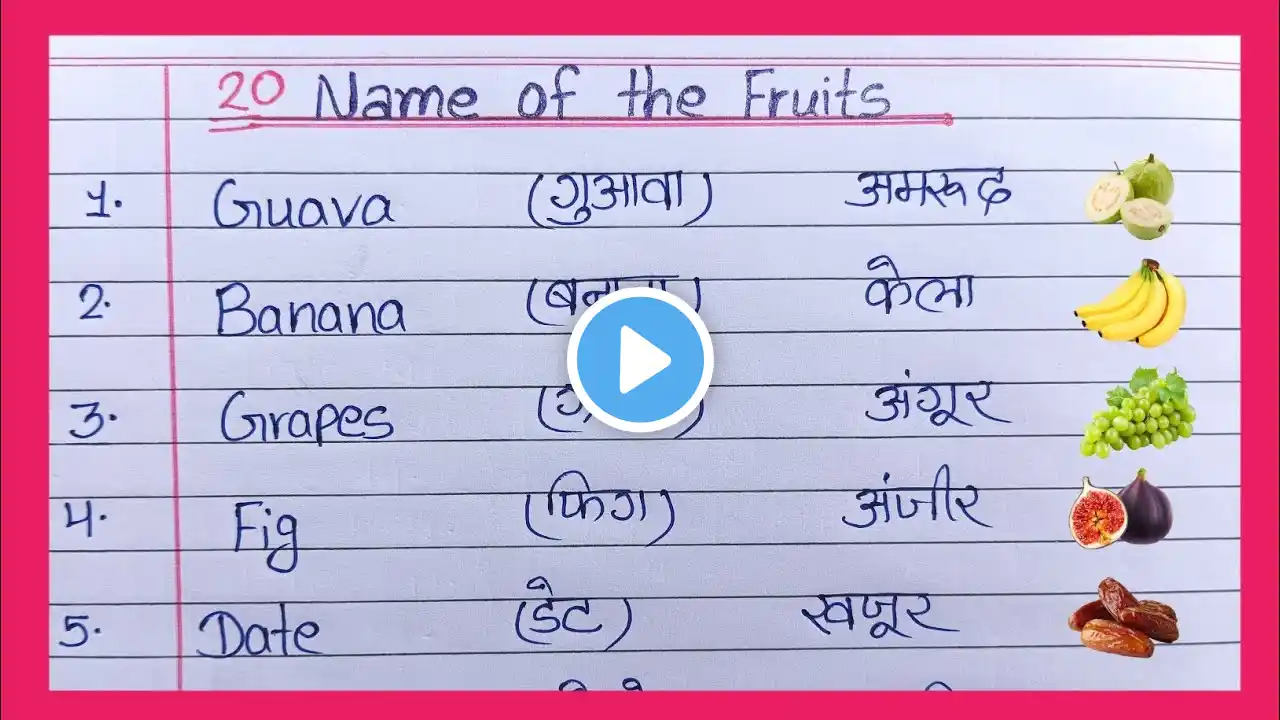 20 Name of the Fruits
1. Guava (गुआवा) अमरूद
2. Banana केला
3. Grapes अंगूर
4. Fig (फिग) अंजीर
5. Date (डेट) खजूर